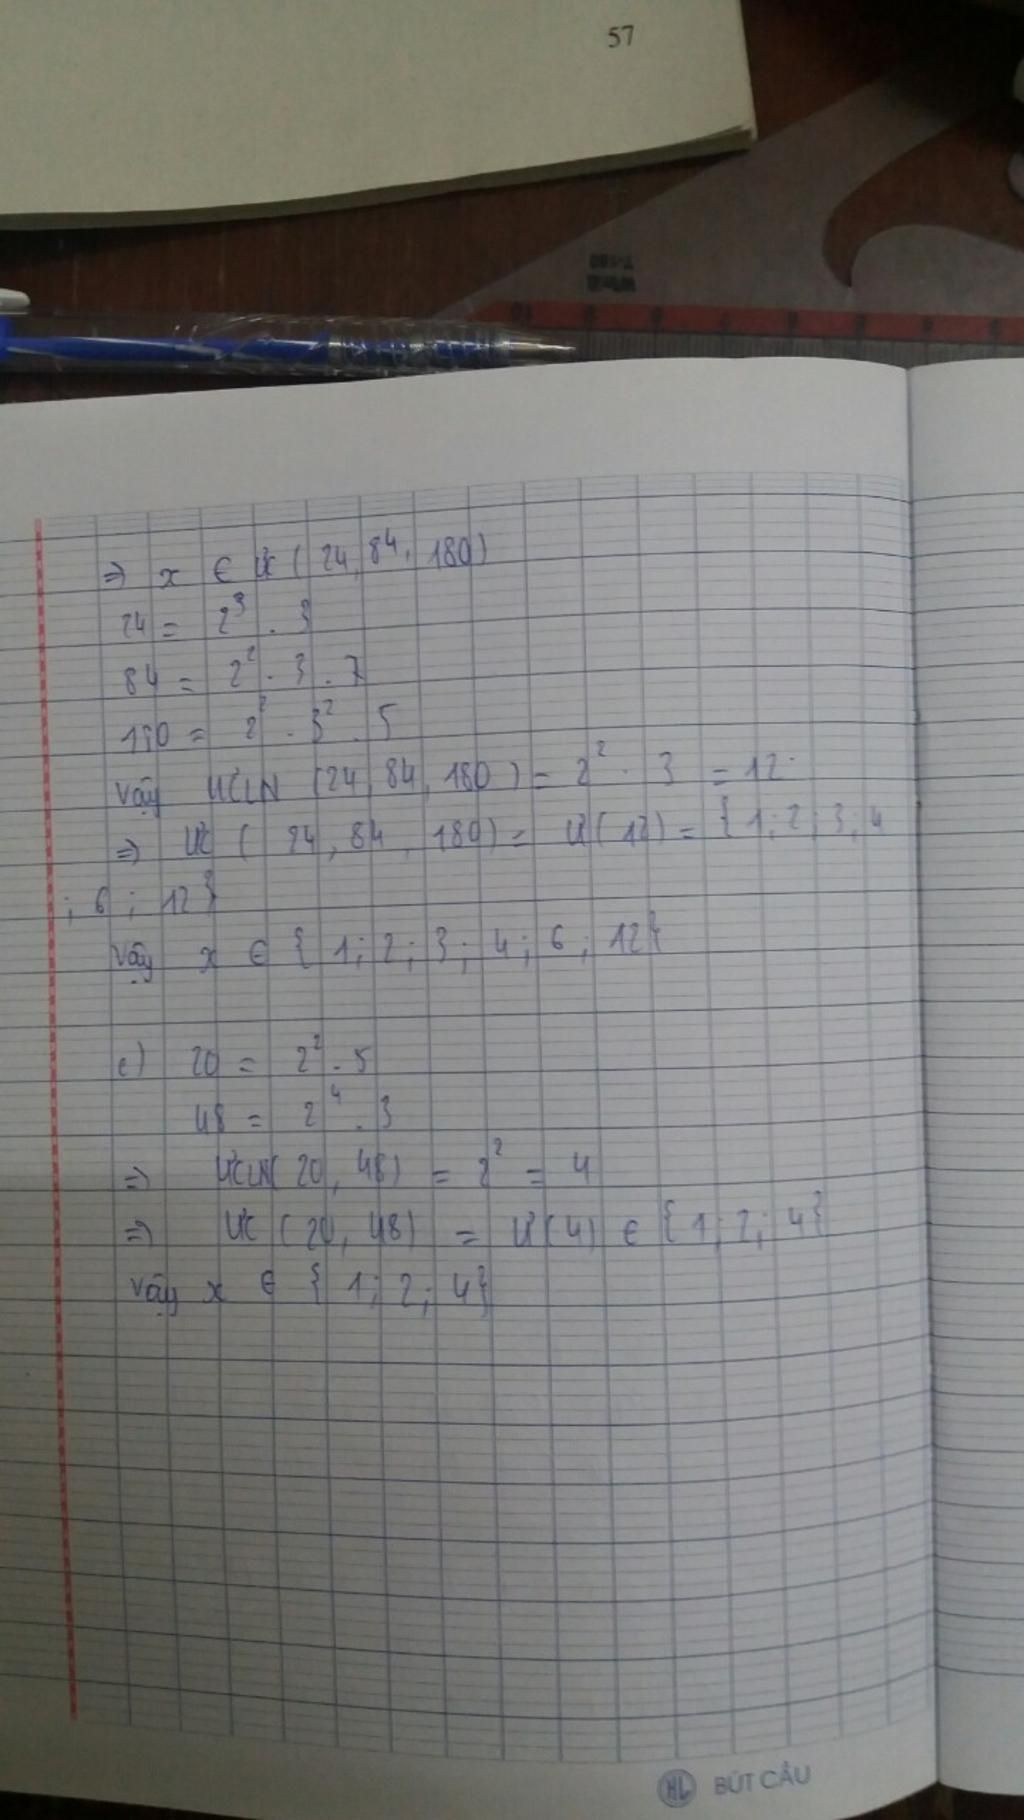 57
⇒ x ∈ ƯC ( 24, 84, 180)
24 = 2³ . 3
84 = 2² . 3 . 7
180 = 2² . 3² . 5
Vậy ƯCLN (24, 84, 180) = 2² . 3 = 12.
⇒ ƯC ( 24, 84, 180) = Ư(12) = { 1; 2; 3; 4
; 6 ; 12}
Vậy x ∈ { 1; 2; 3; 4; 6; 12}
c) 20 = 2² . 5
48 = 2⁴ . 3
⇒ ƯCLN( 20, 48) = 2² = 4
⇒ ƯC (20, 48) = Ư(4) ∈ {1; 2; 4}
Vậy x ∈ { 1; 2; 4}
HL BÚT CẦU